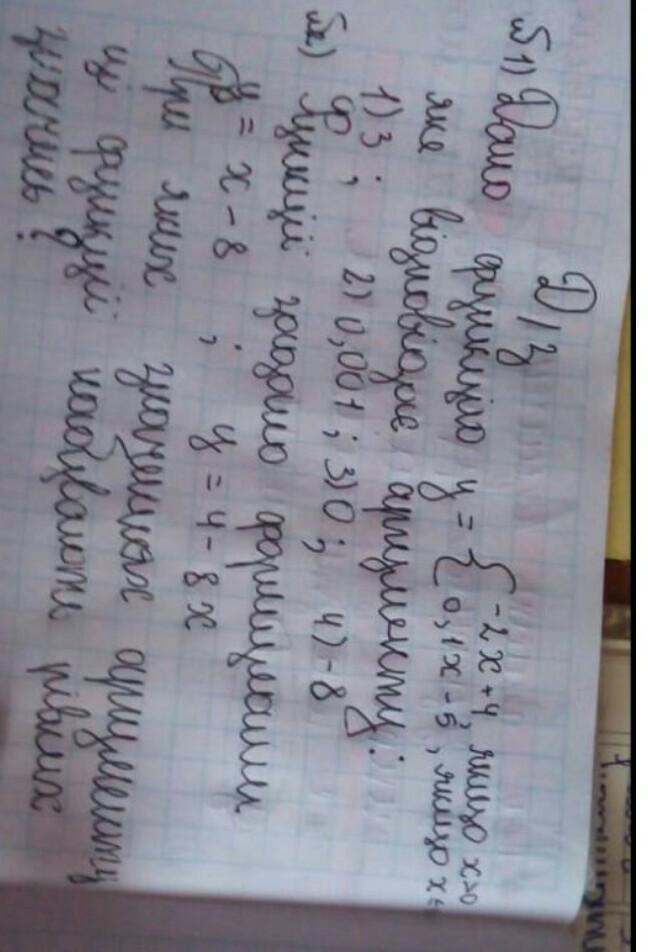 Д/з
№1) Дано функцію y = { -2x + 4, якщо x>0
0,1x - 5, якщо x ≤
яке відповідає аргументу:
1) 3; 2) 0,001; 3) 0; 4) -8
№2) Функції задано формулами
y = x - 8; y = 4 - 8x
При яких значеннях аргументу
ці функції набувають рівних
значень?